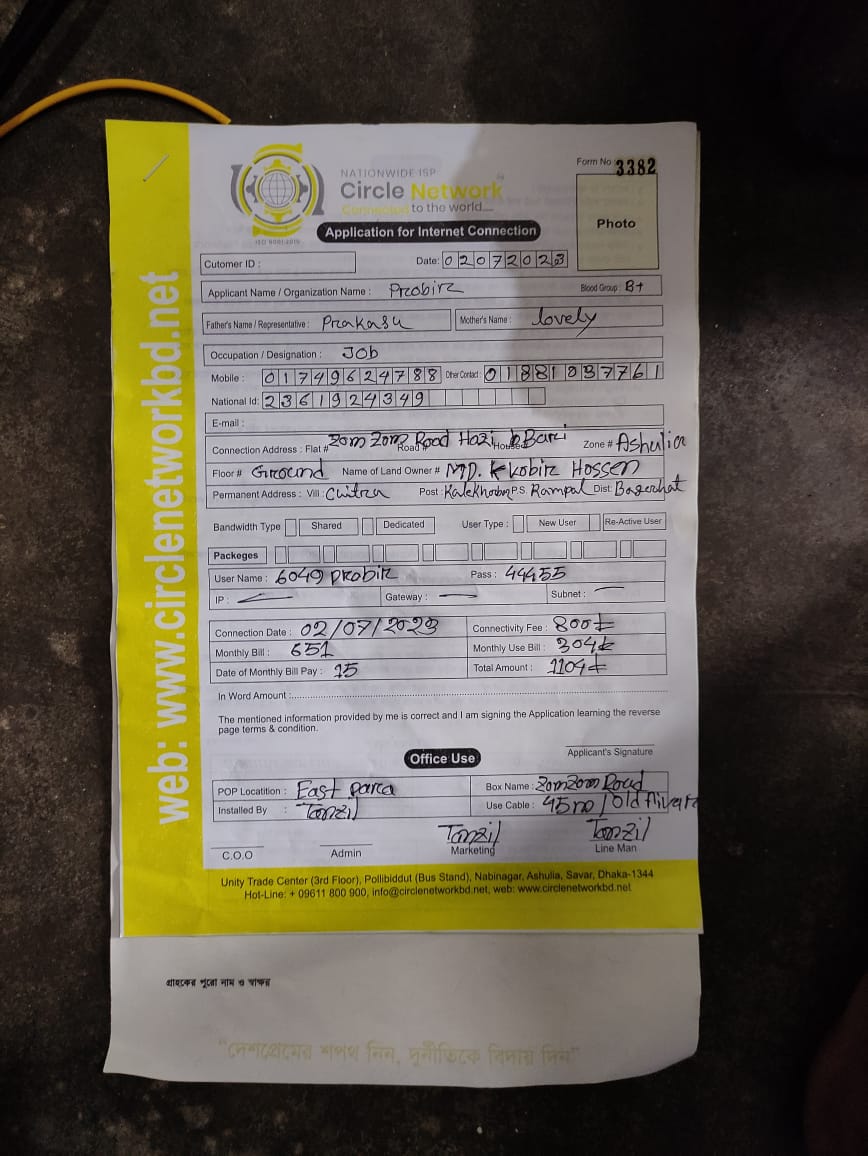 NATIONWIDE ISP
Circle Network
Connected to the world....
ISO 9001:2015
Form No 3382
Photo
Application for Internet Connection
Cutomer ID :
Date: 02072023
Applicant Name / Organization Name : Probir Blood Group: B+
Father's Name / Representative : Prakash Mother's Name : lovely
Occupation / Designation : Job
Mobile : 01749624788 Other Contact : 01881037761
National Id: 2361924349
E-mail :
Connection Address : Flat # Zom Zom Road Hazi Bari Road # House# Zone # Ashulia
Floor # Ground Name of Land Owner # MD. Kobir Hossen
Permanent Address : Vill : Chitra Post : P.S. Rampal Dist: Bagerhat
Bandwidth Type Shared Dedicated User Type : New User Re-Active User
Packeges
User Name : 6049 probir Pass : 44455
IP : Gateway : Subnet :
Connection Date : 02/07/2023 Connectivity Fee : 800৳
Monthly Bill : 651 Monthly Use Bill : 304৳
Date of Monthly Bill Pay : 15 Total Amount : 1104৳
In Word Amount :
The mentioned information provided by me is correct and I am signing the Application learning the reverse
page terms & condition.
Applicant's Signature
Office Use
POP Locatition : East para Box Name : Zom Zom Road
Installed By : Tanzil Use Cable : 45 m / Old
Tanzil Tanzil
C.O.O Admin Marketing Line Man
Unity Trade Center (3rd Floor), Pollibiddut (Bus Stand), Nabinagar, Ashulia, Savar, Dhaka-1344
Hot-Line: + 09611 800 900, info@circlenetworkbd.net, web: www.circlenetworkbd.net
web: www.circlenetworkbd.net
গ্রাহকের পুরো নাম ও স্বাক্ষর
"দেশপ্রেমের শপথ নিন, দুর্নীতিকে বিদায় দিন"